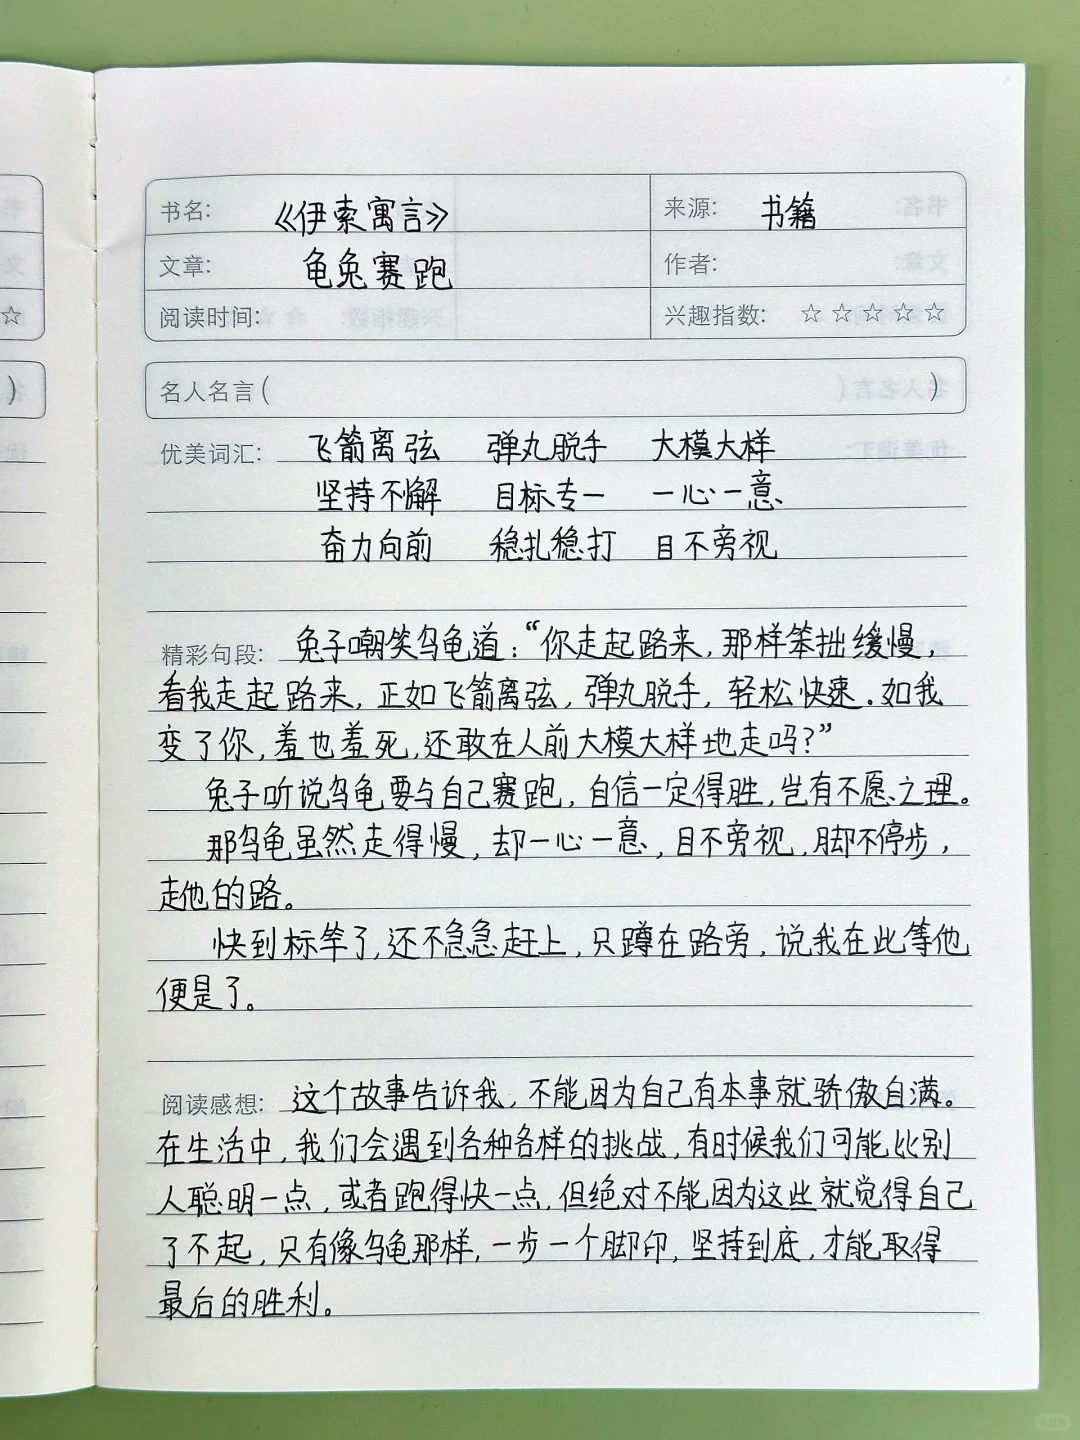 书名: 《伊索寓言》 来源: 书籍
文章: 龟兔赛跑 作者:
阅读时间: 兴趣指数: ☆☆☆☆☆
名人名言( )
优美词汇: 飞箭离弦 弹丸脱手 大模大样
坚持不懈 目标专一 一心一意
奋力向前 稳扎稳打 目不旁视
精彩句段: 兔子嘲笑乌龟道:“你走起路来,那样笨拙缓慢,
看我走起路来,正如飞箭离弦,弹丸脱手,轻松快速.如我
变了你,羞也羞死,还敢在人前大模大样地走吗?”
兔子听说乌龟要与自己赛跑,自信一定得胜,岂有不愿之理。
那乌龟虽然走得慢,却一心一意,目不旁视,脚不停步,
走他的路。
快到标竿了,还不急急赶上,只蹲在路旁,说我在此等他
便是了。
阅读感想: 这个故事告诉我,不能因为自己有本事就骄傲自满。
在生活中,我们会遇到各种各样的挑战,有时候我们可能比别
人聪明一点,或者跑得快一点,但绝对不能因为这些就觉得自己
了不起,只有像乌龟那样,一步一个脚印,坚持到底,才能取得
最后的胜利。